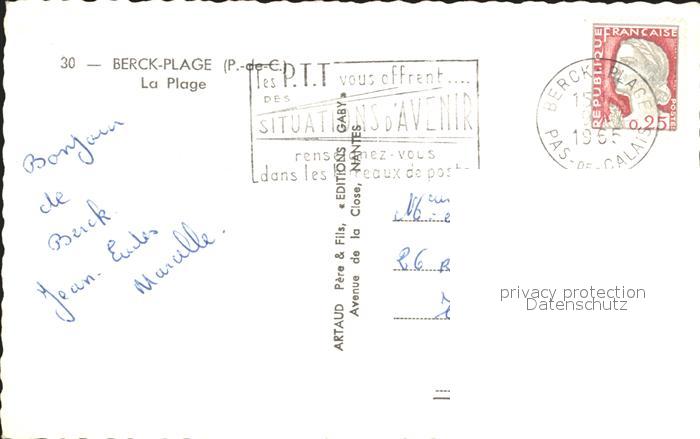 30 — BERCK-PLAGE (P.-de-C.)
La Plage
les P.T.T vous offrent....
DES
SITUATIONS D'AVENIR
renseignez-vous
dans les bureaux de poste
BERCK-PLAGE
15
1965
PAS-DE-CALAIS
REPUBLIQUE FRANÇAISE
POSTES
0,25
Bonjour
de
Berck.
Jean-Eudes
Marcelle.
ARTAUD Père & Fils, « EDITIONS GABY »
Avenue de la Close, NANTES
26 R
privacy protection
Datenschutz